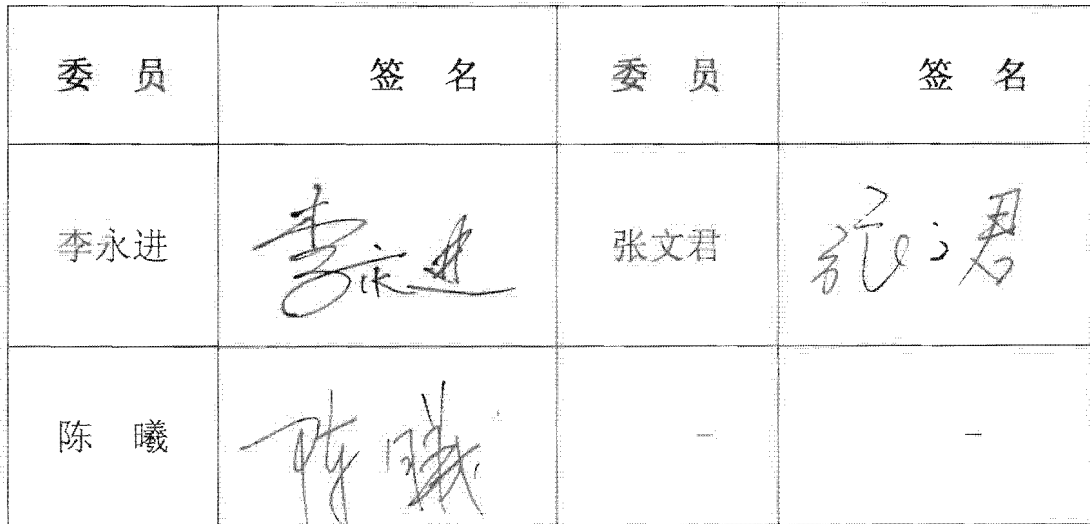 委 员 签 名 委 员 签 名
李永进 李永进 张文君 张文君
陈 曦 陈曦 - -